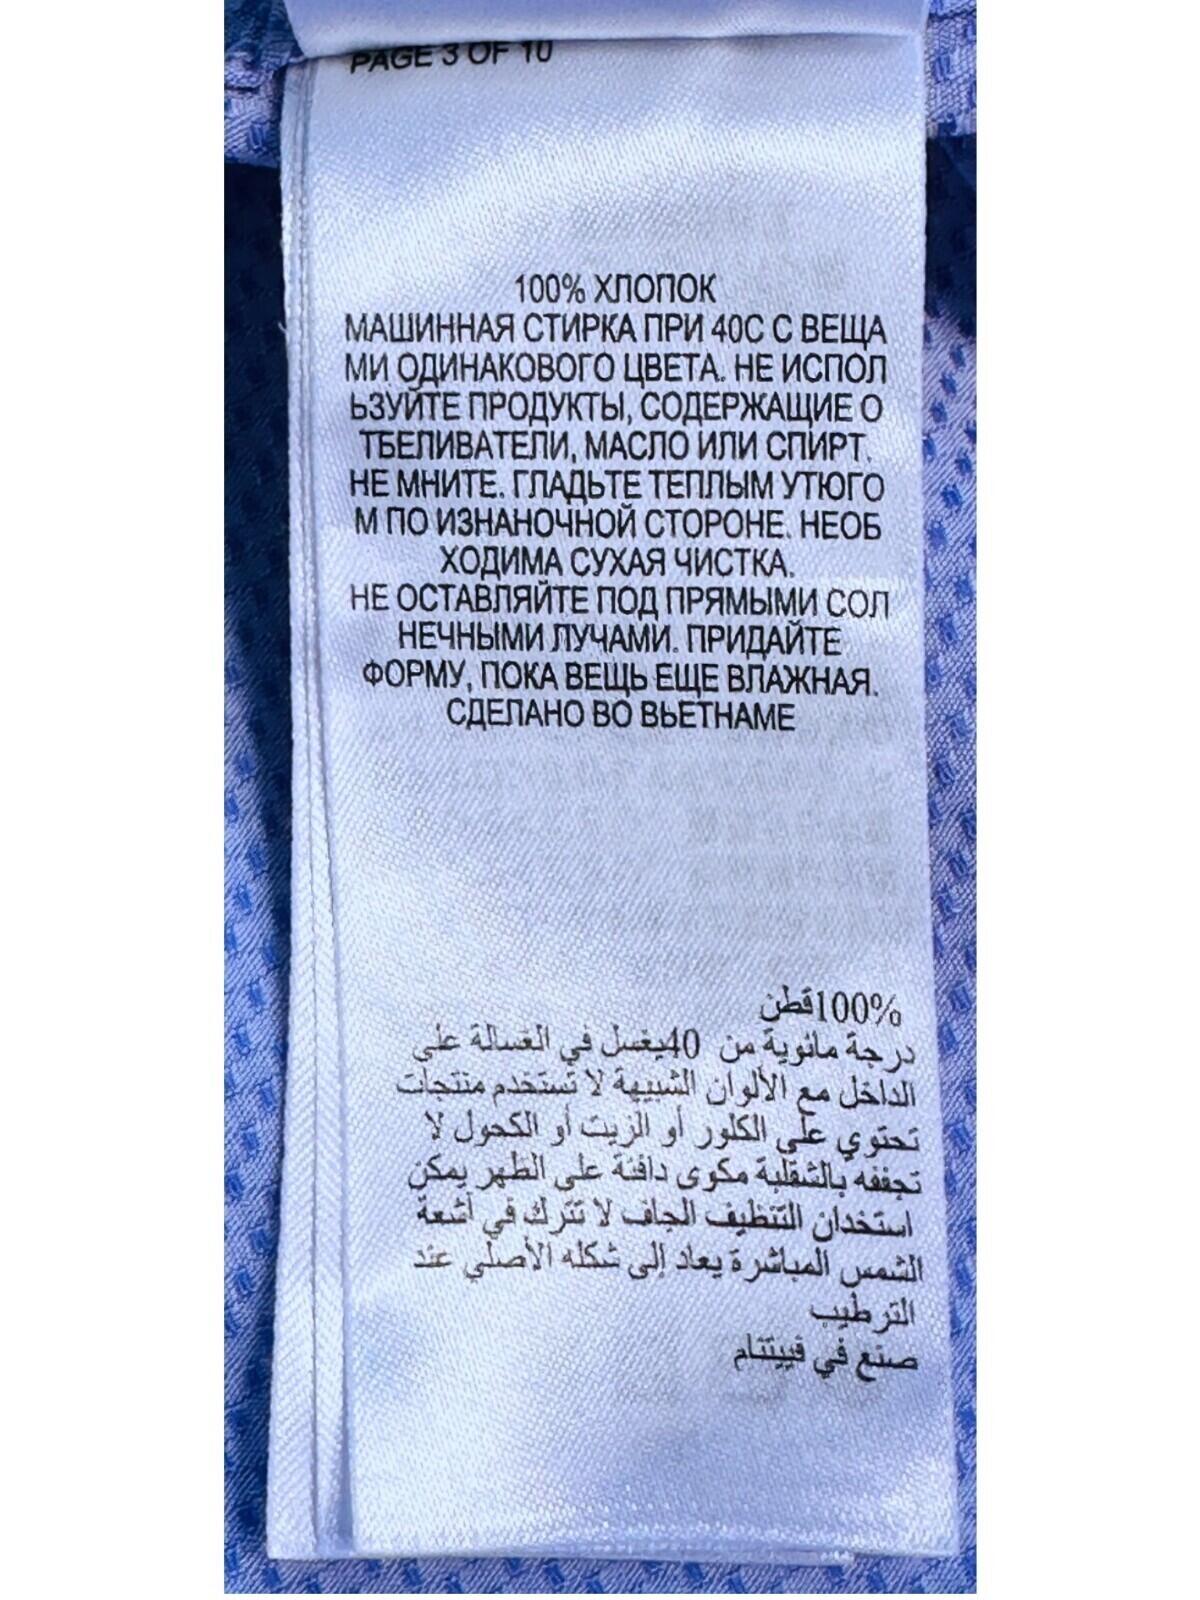 PAGE 3 OF 10
100% ХЛОПОК
МАШИННАЯ СТИРКА ПРИ 40С С ВЕЩА
МИ ОДИНАКОВОГО ЦВЕТА. НЕ ИСПОЛ
ЬЗУЙТЕ ПРОДУКТЫ, СОДЕРЖАЩИЕ О
ТБЕЛИВАТЕЛИ, МАСЛО ИЛИ СПИРТ.
НЕ МНИТЕ. ГЛАДЬТЕ ТЕПЛЫМ УТЮГО
М ПО ИЗНАНОЧНОЙ СТОРОНЕ. НЕОБ
ХОДИМА СУХАЯ ЧИСТКА.
НЕ ОСТАВЛЯЙТЕ ПОД ПРЯМЫМИ СОЛ
НЕЧНЫМИ ЛУЧАМИ. ПРИДАЙТЕ
ФОРМУ, ПОКА ВЕЩЬ ЕЩЕ ВЛАЖНАЯ.
СДЕЛАНО ВО ВЬЕТНАМЕ
100%قطن
درجة مائوية من 40يغسل في الغسالة على
الداخل مع الألوان الشبيهة لا تستخدم منتجات
تحتوي على الكلور أو الزيت أو الكحول لا
تجففه بالشقلبة مكوى دافئة على الظهر يمكن
استخدان التنظيف الجاف لا تترك في أشعة
الشمس المباشرة يعاد إلى شكله الأصلي عند
الترطيب
صنع في فييتنام